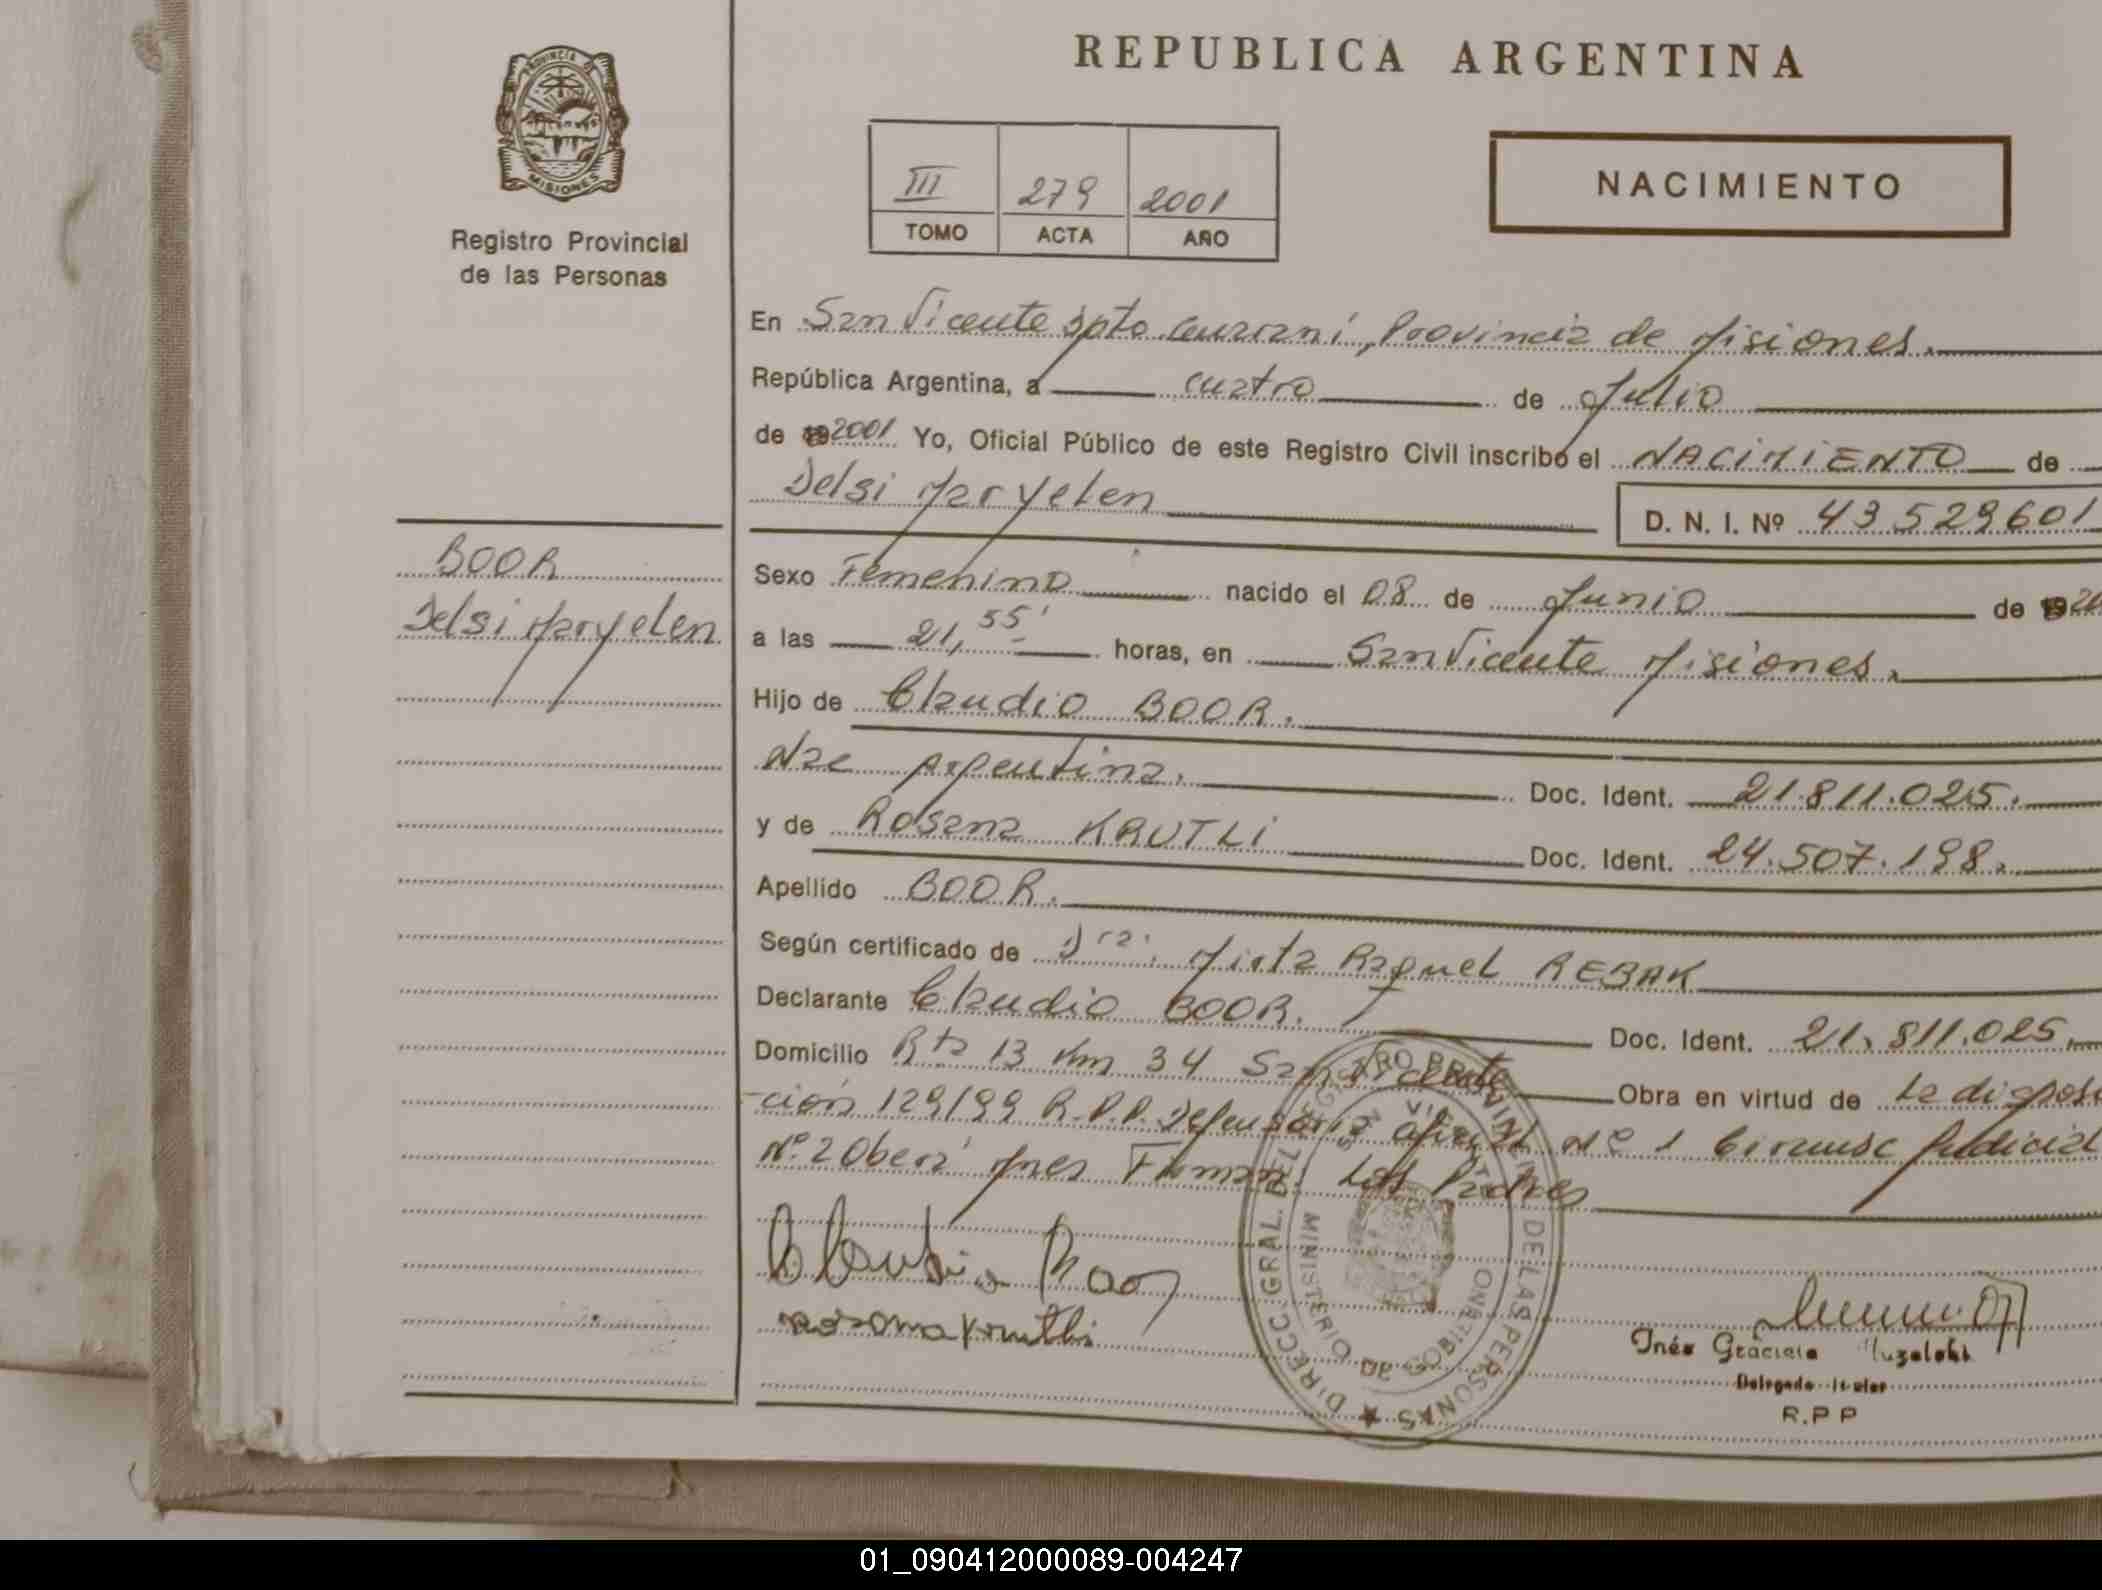 PROVINCIA DE
MISIONES
Registro Provincial
de las Personas
BOOR
Delsi Maryelen
REPUBLICA ARGENTINA
III 279 2001
TOMO ACTA AÑO
NACIMIENTO
En San Vicente Dpto. Guaraní, Provincia de Misiones.
República Argentina, a cuatro de Julio
de 19 2001 Yo, Oficial Público de este Registro Civil inscribo el NACIMIENTO de
Delsi Maryelen
D. N. I. Nº 43529601
Sexo Femenino nacido el 08 de Junio de 19 20
a las 21,55' horas, en San Vicente Misiones.
Hijo de Claudio BOOR.
Nac Argentina. Doc. Ident. 21.811.025.
y de Rosana KRUTLI Doc. Ident. 24.507.198.
Apellido BOOR.
Según certificado de Dra. Mirta Raquel REBAK
Declarante Claudio BOOR. Doc. Ident. 21.811.025.
Domicilio Rta 13 Km 34 San Vicente Obra en virtud de La disposi
-ción 129/99 R.P.P. Defensoria Oficial Nº 1 Circunsc Judicial
Nº 2 Oberá Mnes Firman Los Padres
Claudio Boor
rosana krutli
DIRECC. GRAL. DEL REGISTRO PROVINCIAL DE LAS PERSONAS ★
SAN VICENTE
MINISTERIO DE GOBIERNO
Inés Graciela
Delegada Titular
R.P P
01_090412000089-004247